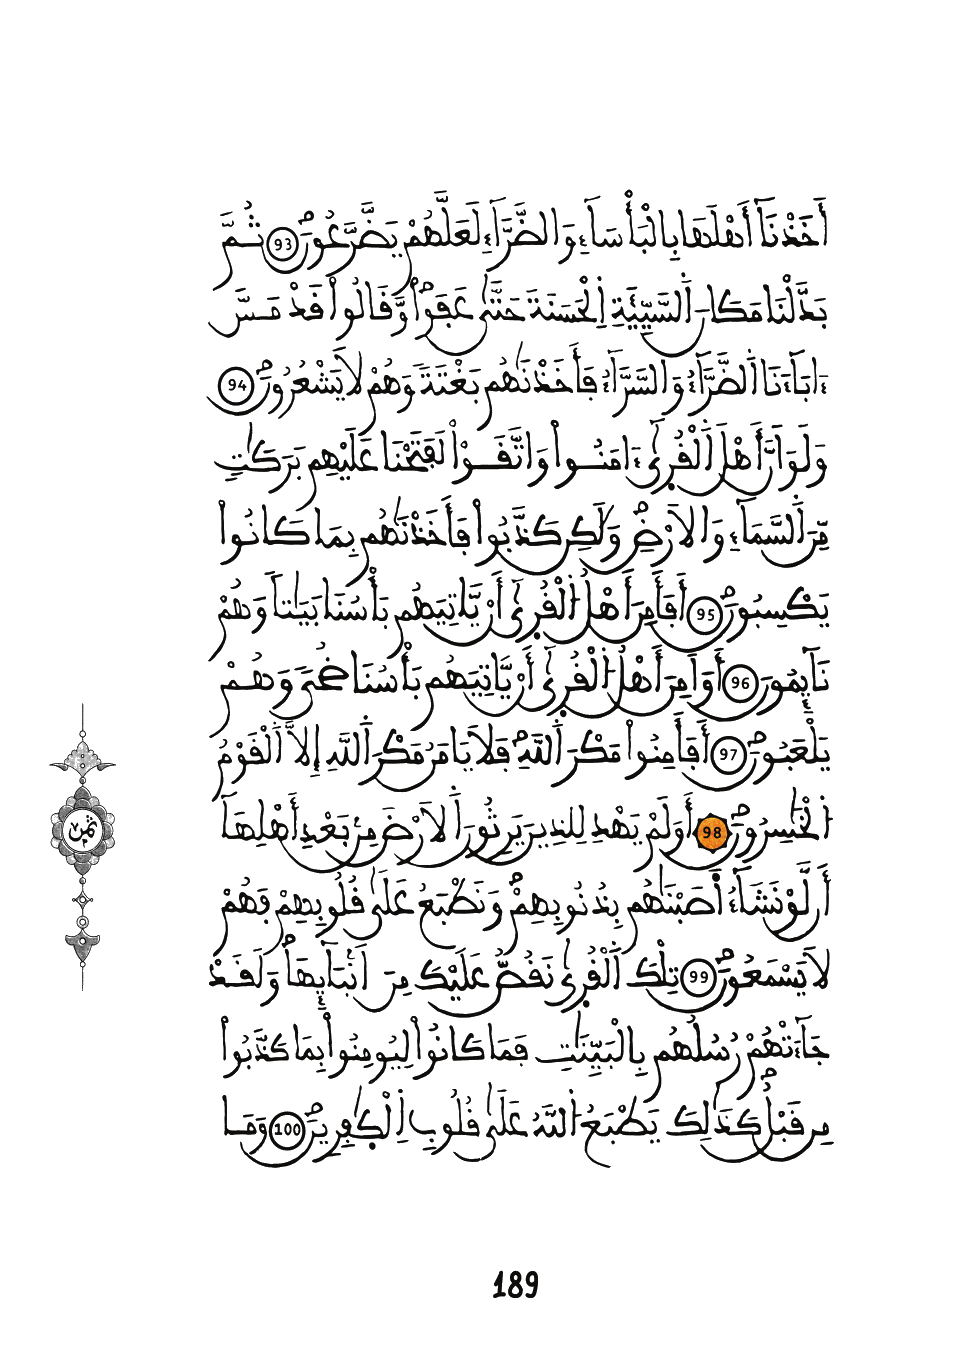 أَخَذْنَآ أَهْلَهَا بِالْبَأْسَآءِ وَالضَّرَّآءِ لَعَلَّهُمْ يَضَّرَّعُونَ 93 ثُمَّ
بَدَّلْنَا مَكَانَ اَ۬لسَّيِّئَةِ اِ۬لْحَسَنَةَ حَتَّىٰ عَفَواْ وَّقَالُواْ قَدْ مَسَّ
ءَابَآءَنَا اَ۬لضَّرَّآءُ وَالسَّرَّآءُ فَأَخَذْنَٰهُم بَغْتَةً وَهُمْ لَا يَشْعُرُونَ 94
وَلَوَ اَنَّ أَهْلَ اَ۬لْقُر۪ىٰٓ ءَامَنُواْ وَاتَّقَوْاْ لَفَتَحْنَا عَلَيْهِم بَرَكَٰتٖ
مِّنَ اَ۬لسَّمَآءِ وَالَارْضِ وَلَٰكِن كَذَّبُواْ فَأَخَذْنَٰهُم بِمَا كَانُواْ
يَكْسِبُونَ 95 أَفَأَمِنَ أَهْلُ اُ۬لْقُر۪ىٰٓ أَنْ يَّاتِيَهُم بَأْسُنَا بَيَٰتاٗ وَهُمْ
نَآئِمُونَ 96 أَوَ اَمِنَ أَهْلُ اُ۬لْقُر۪ىٰٓ أَنْ يَّاتِيَهُم بَأْسُنَا ضُحىٗ وَهُمْ
يَلْعَبُونَ 97 أَفَأَمِنُواْ مَكْرَ اَ۬للَّهِ فَلَا يَامَنُ مَكْرَ اَ۬للَّهِ إِلَّا اَ۬لْقَوْمُ
اُ۬لْخَٰسِرُونَ 98 أَوَلَمْ يَهْدِ لِلذِينَ يَرِثُونَ اَ۬لَارْضَ مِنۢ بَعْدِ أَهْلِهَآ
أَن لَّوْ نَشَآءُ اَ۬صَبْنَٰهُم بِذُنُوبِهِمْ وَنَطْبَعُ عَلَىٰ قُلُوبِهِمْ فَهُمْ
لَا يَسْمَعُونَ 99 تِلْكَ اَ۬لْقُر۪ىٰ نَقُصُّ عَلَيْكَ مِنَ اَنۢبَآئِهَا وَلَقَدْ
جَآءَتْهُمْ رُسُلُهُم بِالْبَيِّنَٰتِ فَمَا كَانُواْ لِيُومِنُواْ بِمَا كَذَّبُواْ
مِن قَبْلُ كَذَٰلِكَ يَطْبَعُ اُ۬للَّهُ عَلَىٰ قُلُوبِ اِ۬لْكٰ۪فِرِينَ 100 وَمَا
ثمن
189